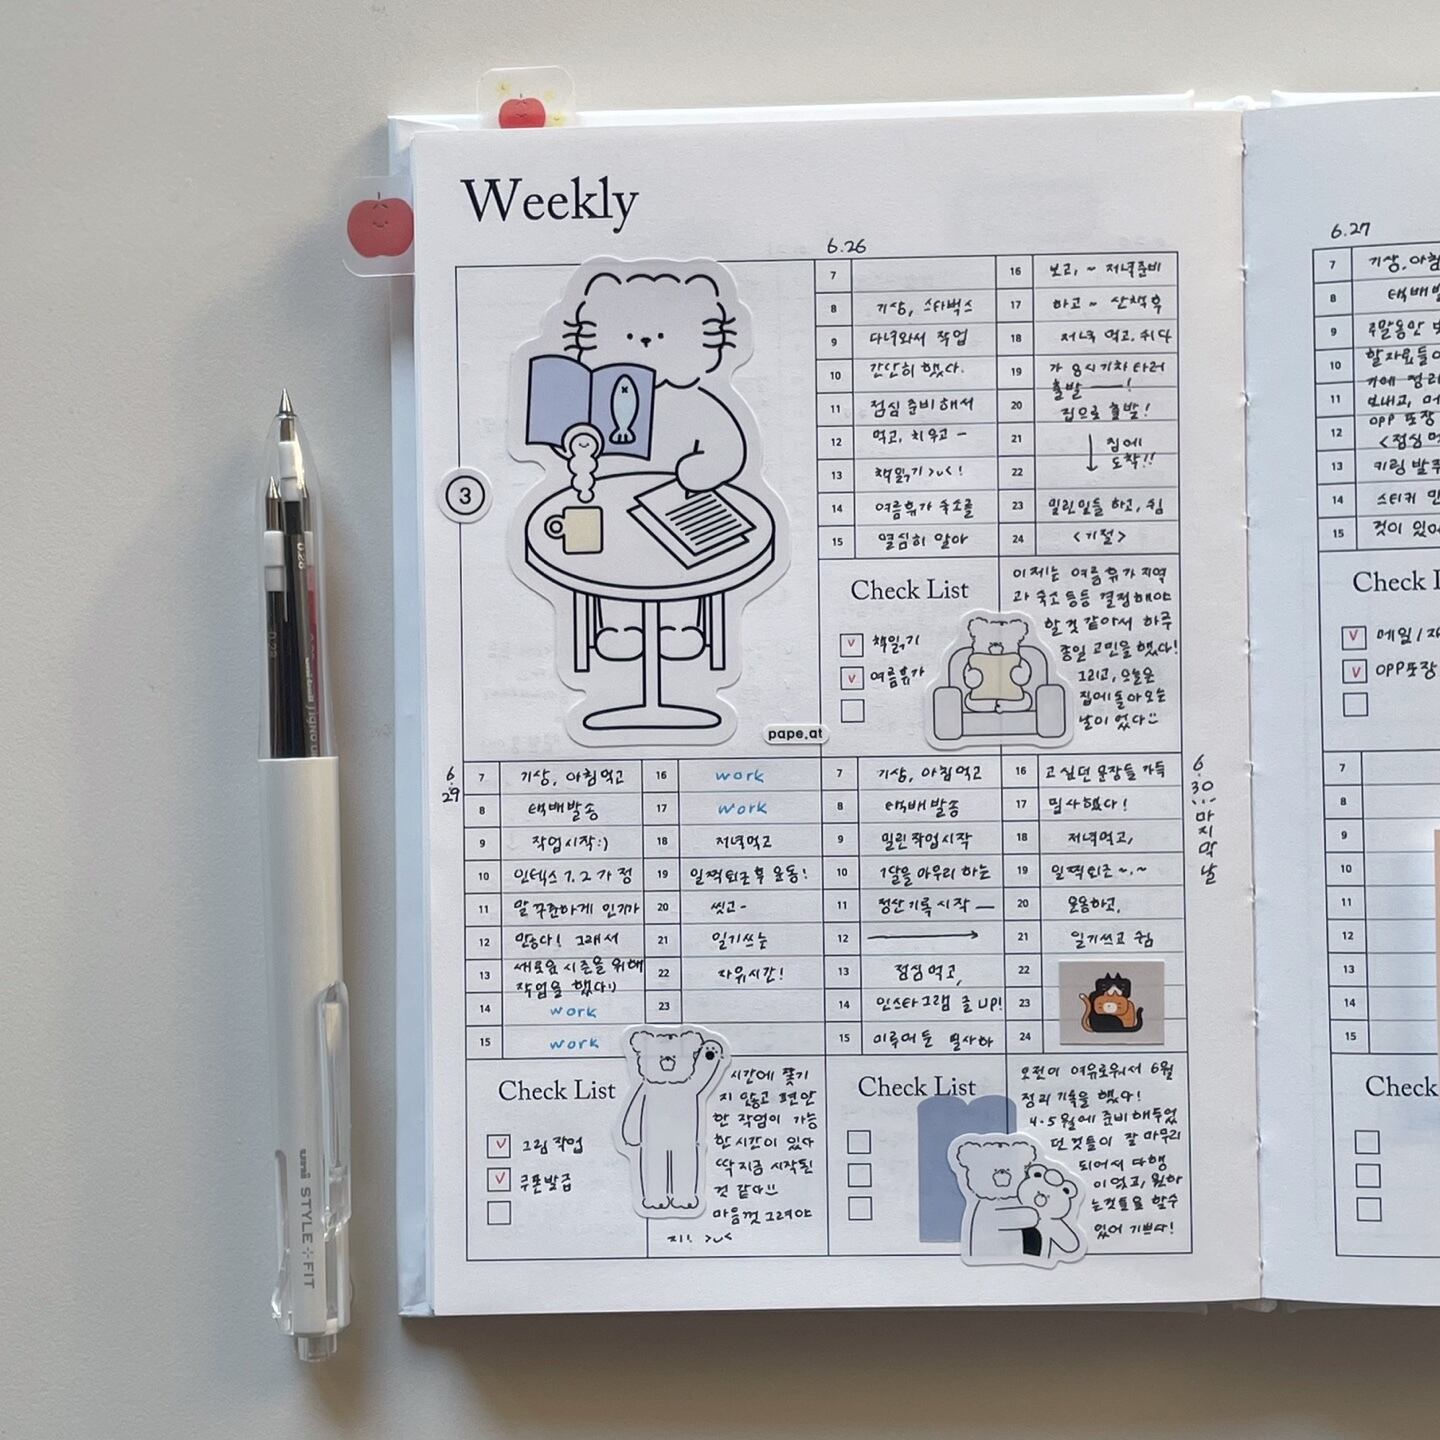 Weekly
3
pape.at
6.26
7
8 기상, 스타벅스
9 다녀와서 작업
10 간단히 했다.
11 점심 준비해서
12 먹고, 치우고 -
13 책읽기 >ᴗ< !
14 여름휴가 숙소를
15 열심히 알아
16 보고, ~ 저녁준비
17 하고 ~ 산책후
18 저녁 먹고, 쉬다
19 가 8시 기차 타러
출발 ——!
20 집으로 출발!
21 집에
22 도착!!
23 밀린일들 하고, 쉼
24 <기절>
Check List
v 책읽기
v 여름휴가
이제는 여름휴가 지역
과 숙소 등등 결정해야
할 것 같아서 하루
종일 고민을 했다!
그리고, 오늘은
집에 돌아오는
날이었다
6.29
7 기상, 아침먹고
8 택배발송
9 작업시작:)
10 인덱스 1, 2 가 정
11 말 꾸준하게 인기가
12 많다! 그래서
13 새로운 시즌을 위해
작업을 했다:)
14 work
15 work
16 work
17 work
18 저녁먹고
19 일찍퇴근후 운동!
20 씻고-
21 일기쓰는
22 자유시간!
23
Check List
v 그림작업
v 쿠폰발급
시간에 쫓기
지 않고 편안
한 작업이 가능
한 시간이 있다
딱 지금 시작된
것 같다
마음껏 그려야
지! >ᴗ<
6.30 ... 마지막날
7 기상, 아침먹고
8 택배발송
9 밀린작업시작
10 1달을 마무리 하는
11 정산기록 시작 —
12
13 점심먹고,
14 인스타그램 글 UP!
15 미루어둔 필사하
16 고싶던 문장들 가득
17 필사했다!
18 저녁먹고,
19 일찍퇴근~.~
20 운동하고,
21 일기쓰고 쉼
22
23
24
Check List
오전이 여유로워서 6월
정리 기록을 했다!
4·5월에 준비해두었
던 것들이 잘 마무리
되어서 다행
이었고, 원하
는것들을 할수
있어 기쁘다!
6.27
7 기상, 아침
8
9
10
11
12
13
14 스티커
15 것이 있어
Check L
v 메일/
v OPP포장
7
8
9
10
11
12
13
14
15
Check
uni STYLE FIT
0.28
0.28